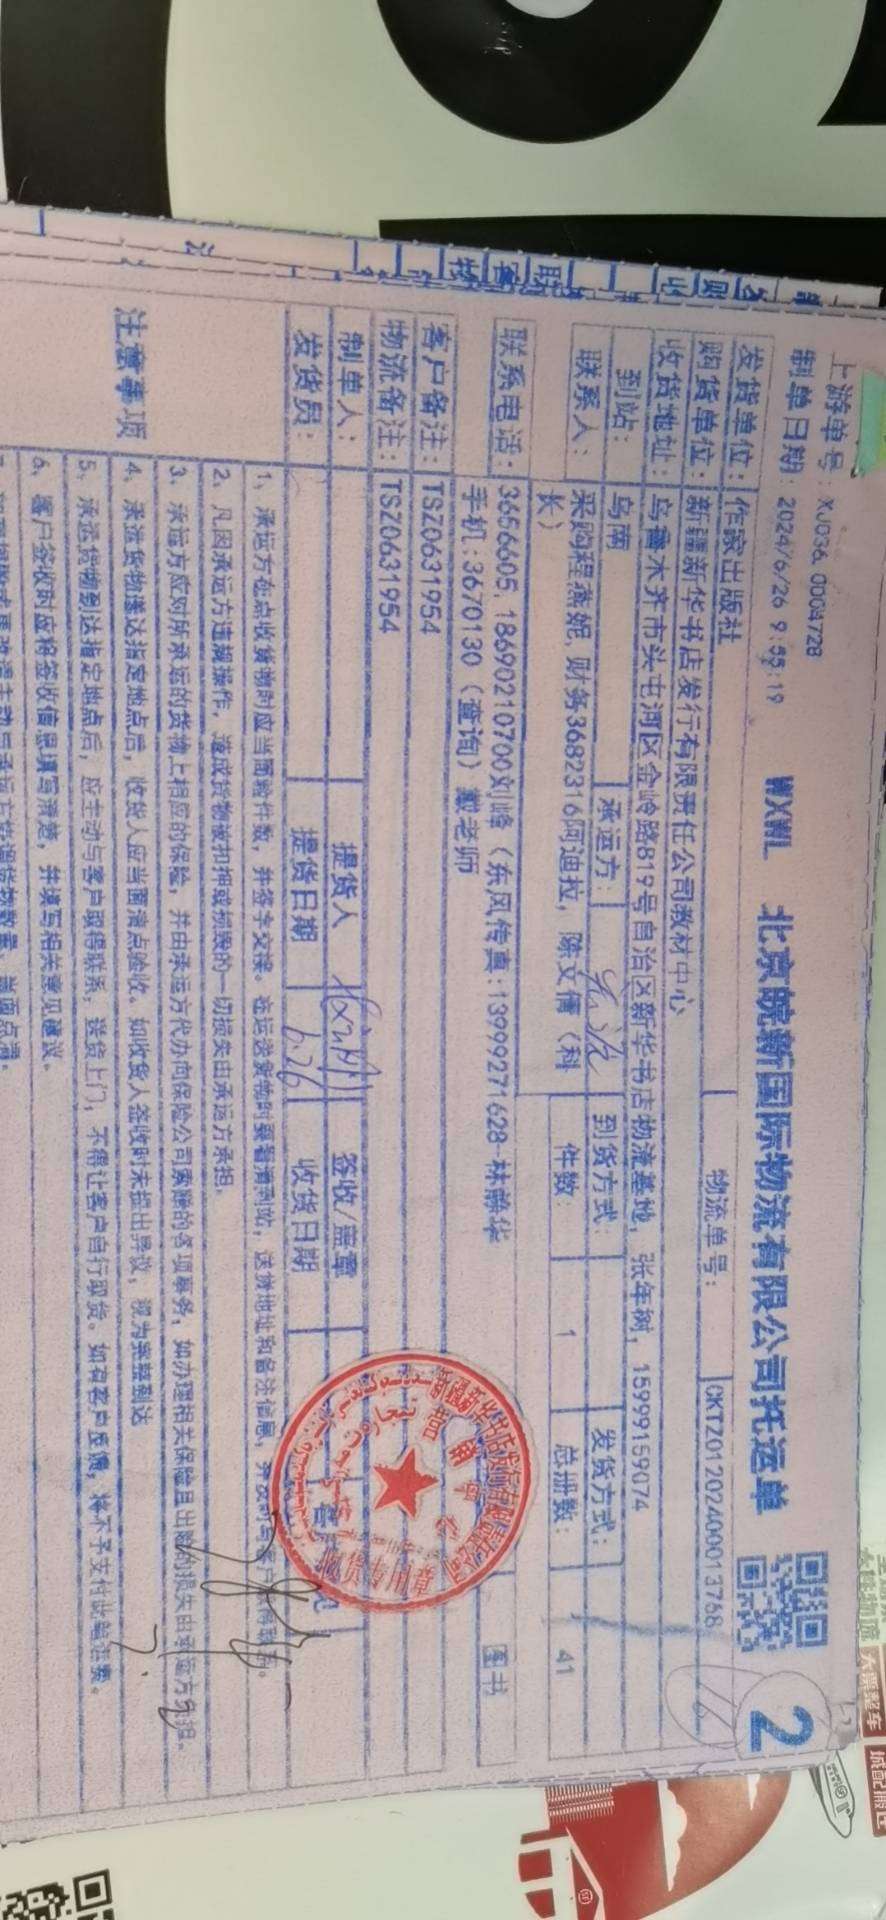 上游单号：XJ036 0004728
制单日期：2024/6/26 9:55:19
WXWL 北京皖新国际物流有限公司托运单
2
发货单位：作家出版社 物流单号：CKTZ01202400013768
购货单位：新疆新华书店发行有限责任公司教材中心
收货地址：乌鲁木齐市头屯河区金岭路819号自治区新华书店物流基地，张年树，15999159074
到站：乌南 承运方： 到货方式： 发货方式：
联系人：采购程燕妮，财务3682316阿迪拉，陈文倩（科长） 件数：1 总册数：41
联系电话：3656605，18690210700刘峰（东风传真：13999271628-林静华
手机：3670130（查询）戴老师 图书
客户备注：TSZ0631954
物流备注：TSZ0631954
制单人： 提货人 签收/盖章
发货员： 提货日期 6.26 收货日期
收货专用章
注意事项
1、承运方在点收货物时应当面验件数，并签字交接。在运送货物时要看清到站，送货地址和备注信息，
2、凡因承运方违规操作，造成货物被扣押或损毁的一切损失由承运方承担。
3、承运方应对所承运的货物上相应的保险，并由承运方代办向保险公司索赔的各项事务，如办理相关保险且出险的损失由承运方承担。
4、承运货物送达指定地点后，收货人应当面清点验收。如收货人签收时未提出异议，视为完整到达
5、承运货物到达指定地点后，应主动与客户取得联系，送货上门，不得让客户自行取货。如有客户反馈，将不予支付此单运费。
6、客户签收时应将签收信息填写清楚，并填写相关意见建议。
大票整车
城配搬运